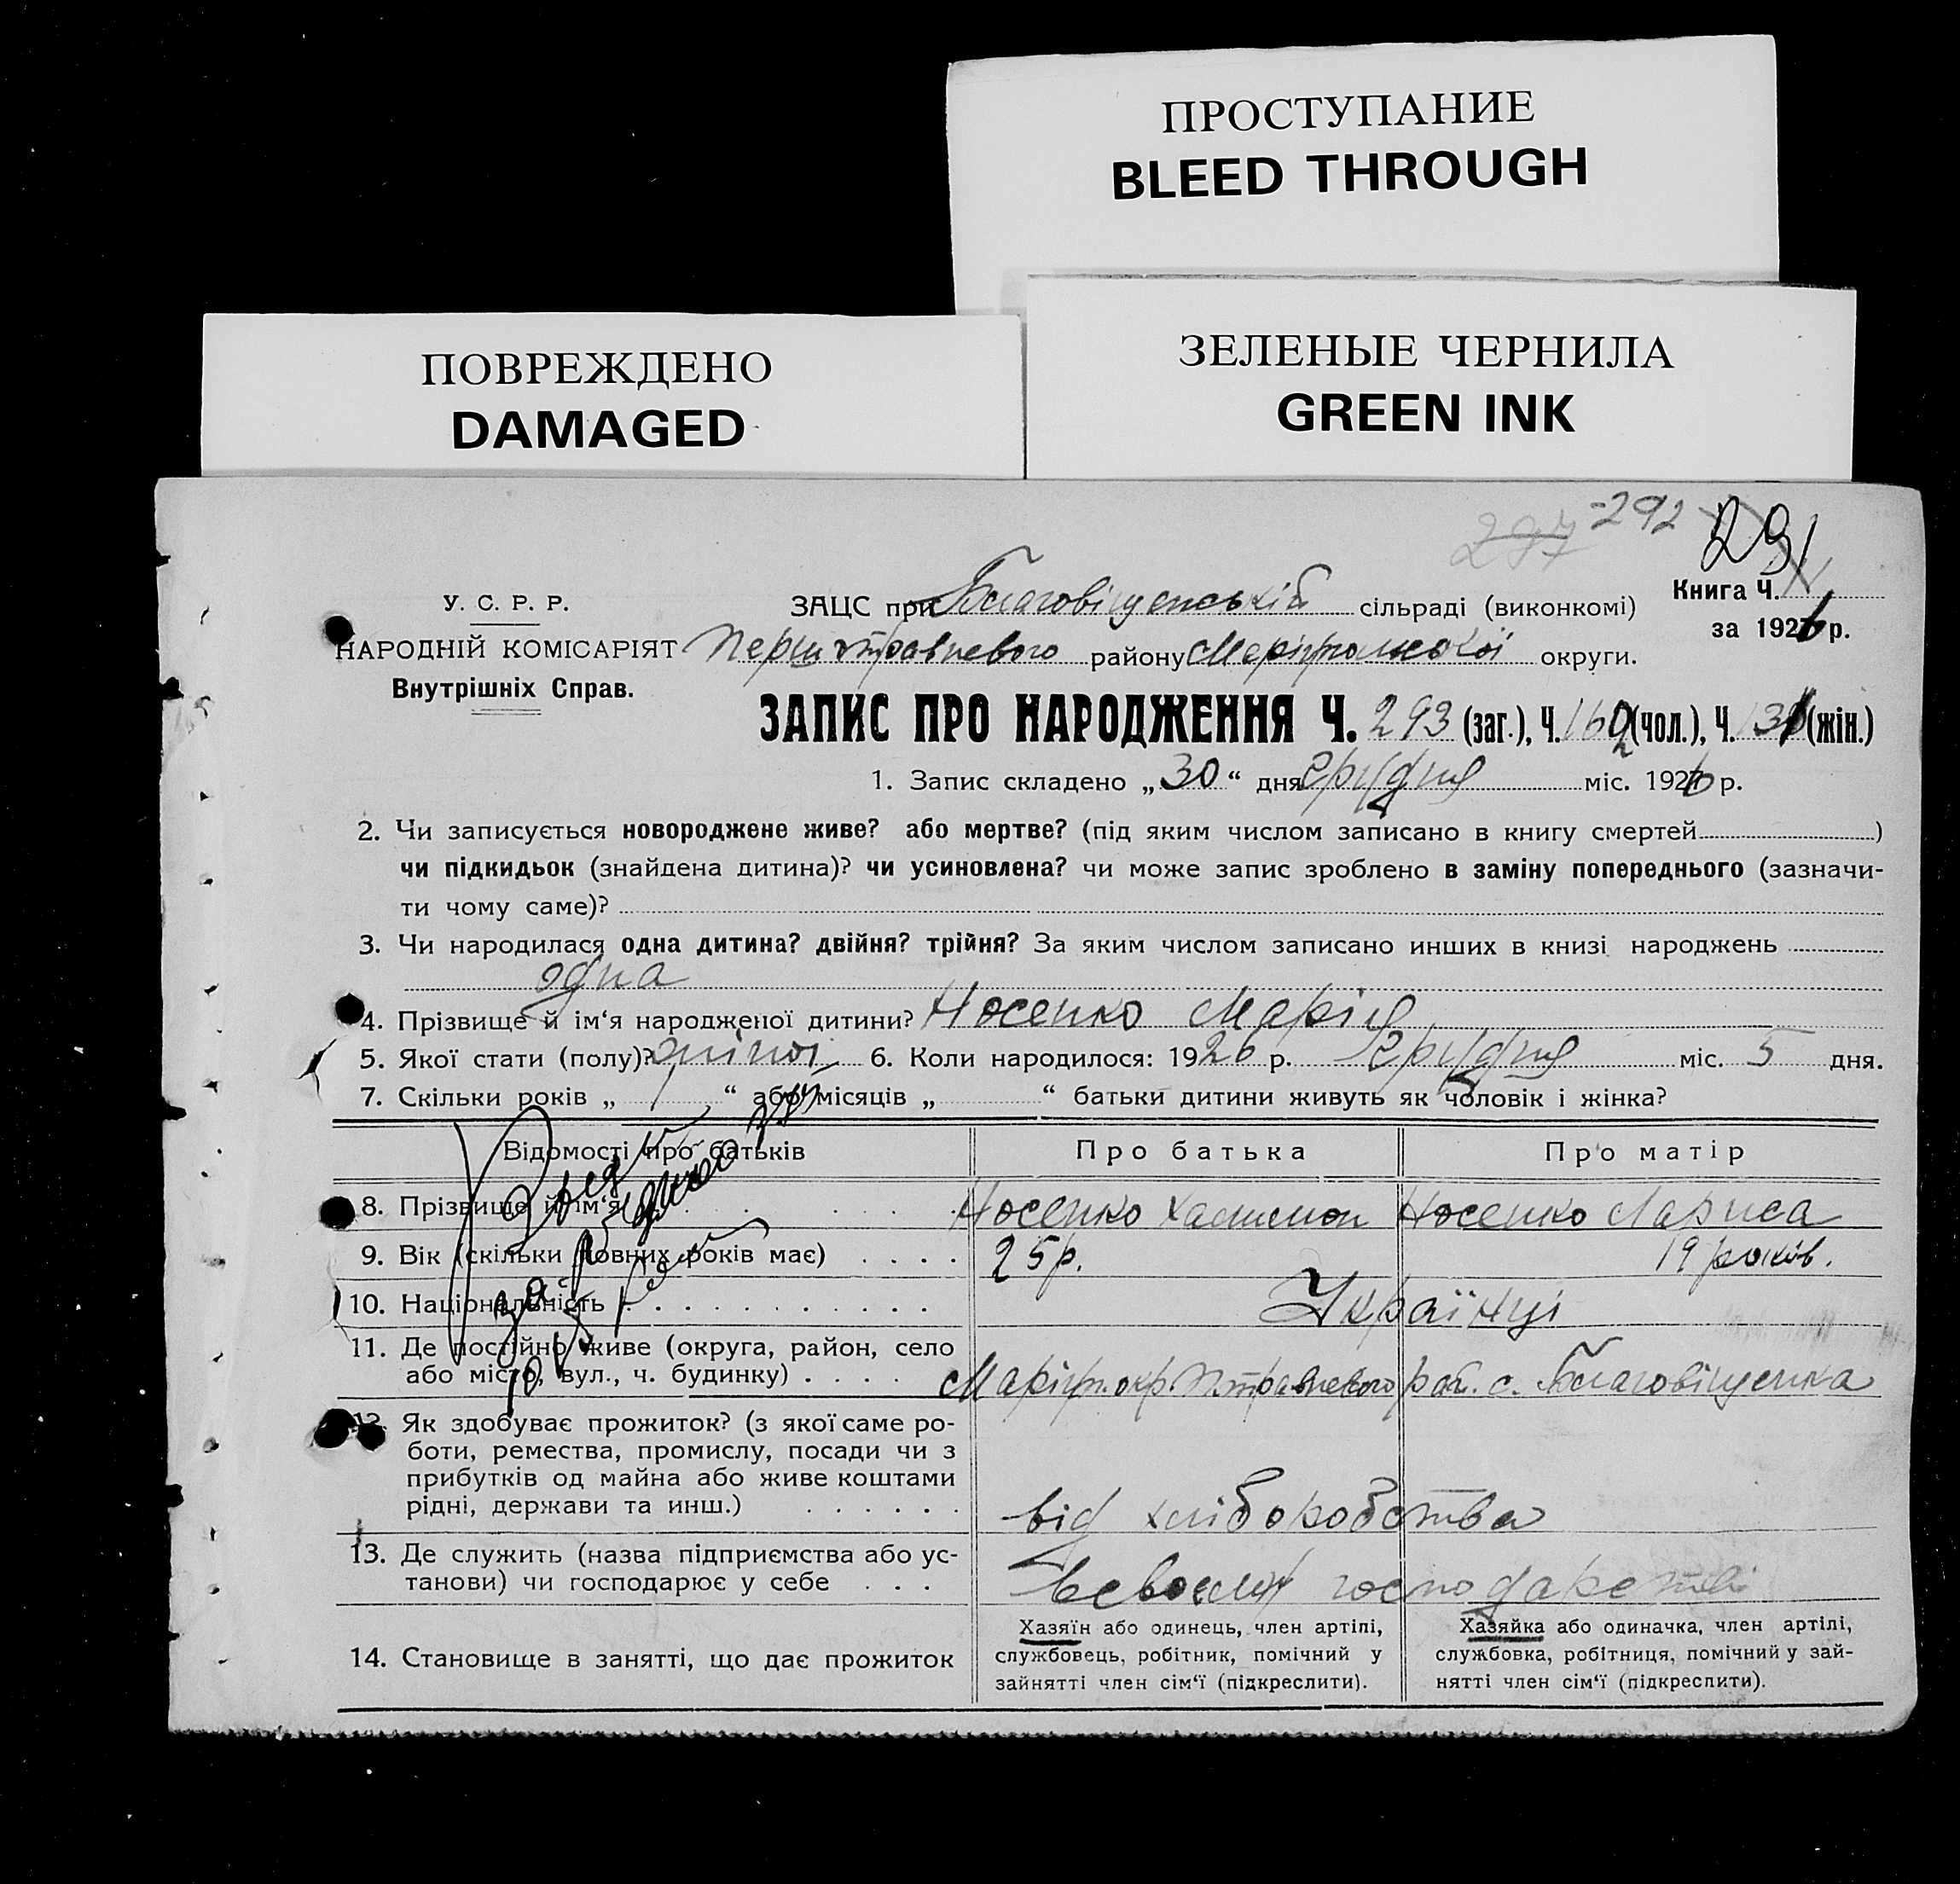 ПРОСТУПАНИЕ
BLEED THROUGH
ПОВРЕЖДЕНО
DAMAGED
ЗЕЛЕНЫЕ ЧЕРНИЛА
GREEN INK
297 -292 291
У. С. Р. Р.
НАРОДНІЙ КОМІСАРІЯТ
Внутрішніх Справ.
ЗАЦС при Благовіщенській сільраді (виконкомі)
Першотравневого району Маріупольської округи.
Книга Ч.
за 1926 р.
ЗАПИС ПРО НАРОДЖЕННЯ Ч. 293 (заг.), Ч. 162 (чол.), Ч. 131 (жін.)
1. Запис складено „30“ дня грудня міс. 1926 р.
2. Чи записується новороджене живе? або мертве? (під яким числом записано в книгу смертей )
чи підкидьок (знайдена дитина)? чи усиновлена? чи може запис зроблено в заміну попереднього (зазначи-
ти чому саме)?
3. Чи народилася одна дитина? двійня? трійня? За яким числом записано инших в книзі народжень
одна
4. Прізвище й ім‘я народженої дитини? Носенко Марія
5. Якої стати (полу)? жіноі 6. Коли народилося: 1926 р. грудня міс. 5 дня.
7. Скільки років „ 1 “ або місяців „ “ батьки дитини живуть як чоловік і жінка?
Відомості про батьків
Про батька
Про матір
8. Прізвище й ім‘я Носенко Носенко Лариса
9. Вік (скільки повних років має) 25 р. 19 років.
10. Національність Українці
11. Де постійно живе (округа, район, село
або місто, вул., ч. будинку) Маріуп. окр. П.травневого рай. с. Благовіщенка
12. Як здобуває прожиток? (з якої саме ро-
боти, ремества, промислу, посади чи з
прибутків од майна або живе коштами
рідні, держави та инш.) від хліборобства
13. Де служить (назва підприємства або ус-
танови) чи господарює у себе всвоєму господарстві
14. Становище в занятті, що дає прожиток
Хазяїн або одинець, член артілі,
службовець, робітник, помічний у
зайнятті член сім‘ї (підкреслити).
Хазяйка або одиначка, член артілі,
службовка, робітниця, помічний у зай-
нятті член сім‘ї (підкреслити).